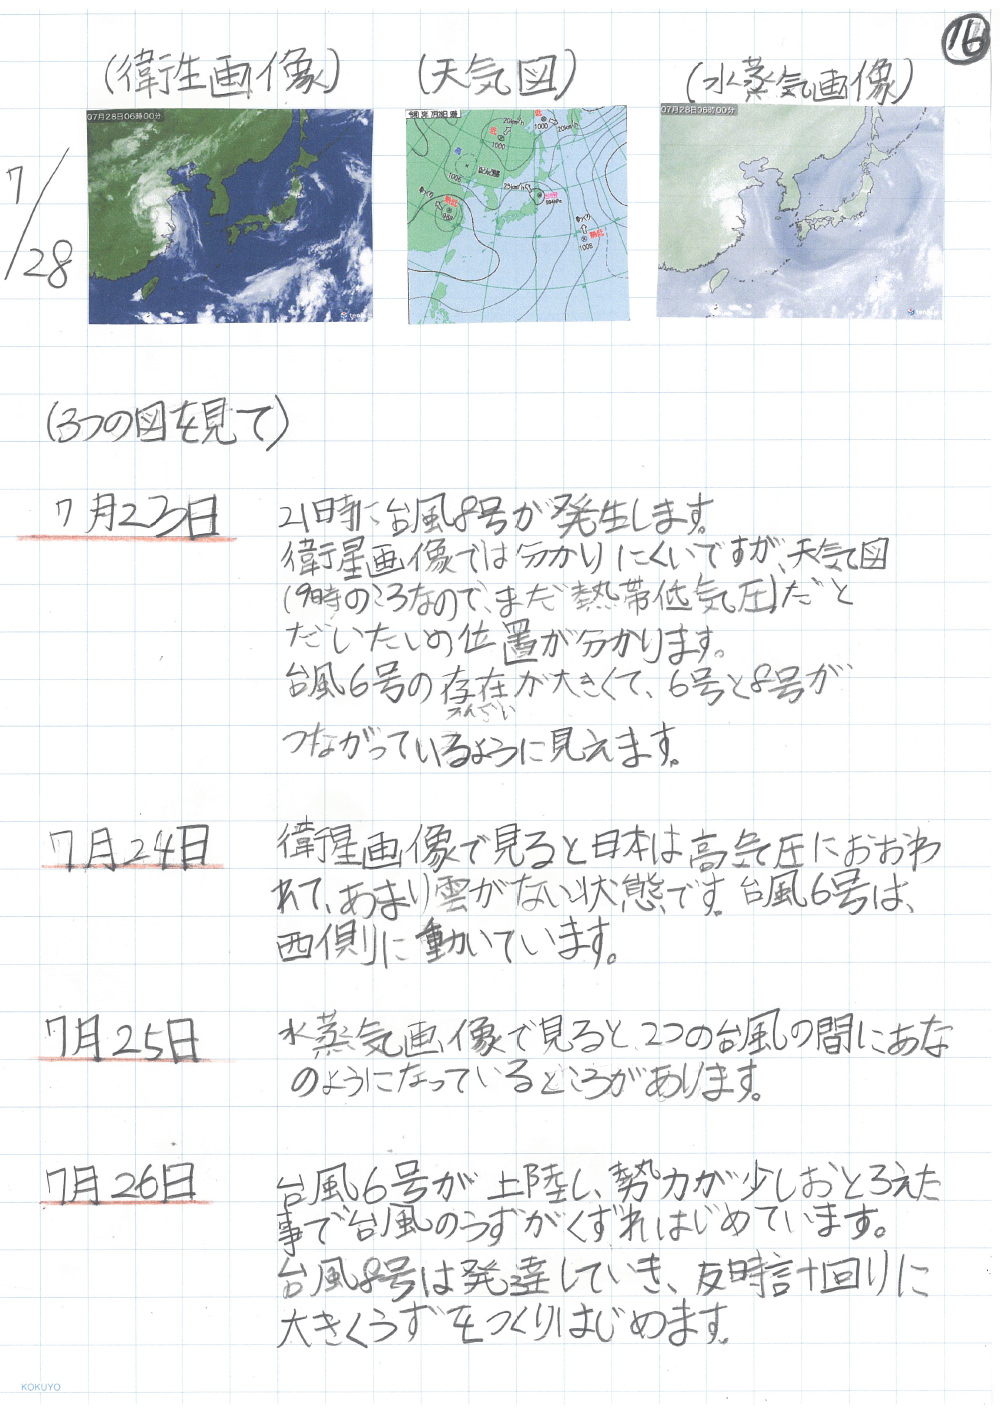 16
(衛生画像)
(天気図)
(水蒸気画像)
7/28
07月28日06時00分
07月28日06時00分
20km/h
1000
20km/h
1000
高
1008
25km/h
ゆっくり
熱低
ゆっくり
熱低
1008
(3つの図を見て)
7月23日
21時に台風8号が発生します。
衛星画像では分かりにくいですが、天気図
(9時のころなので、まだ熱帯低気圧)だと
だいたいの位置が分かります。
台風6号の存在が大きくて、6号と8号が
そんざい
つながっているように見えます。
7月24日
衛星画像で見ると日本は高気圧におおわ
れて、あまり雲がない状態です。台風6号は、
西側に動いています。
7月25日
水蒸気画像で見ると、2つの台風の間にあな
のようになっているところがあります。
7月26日
台風6号が上陸し、勢力が少しおとろえた
事で台風のうずがくずれはじめています。
台風8号は発達していき、反時計回りに
大きくうずをつくりはじめます。
KOKUYO